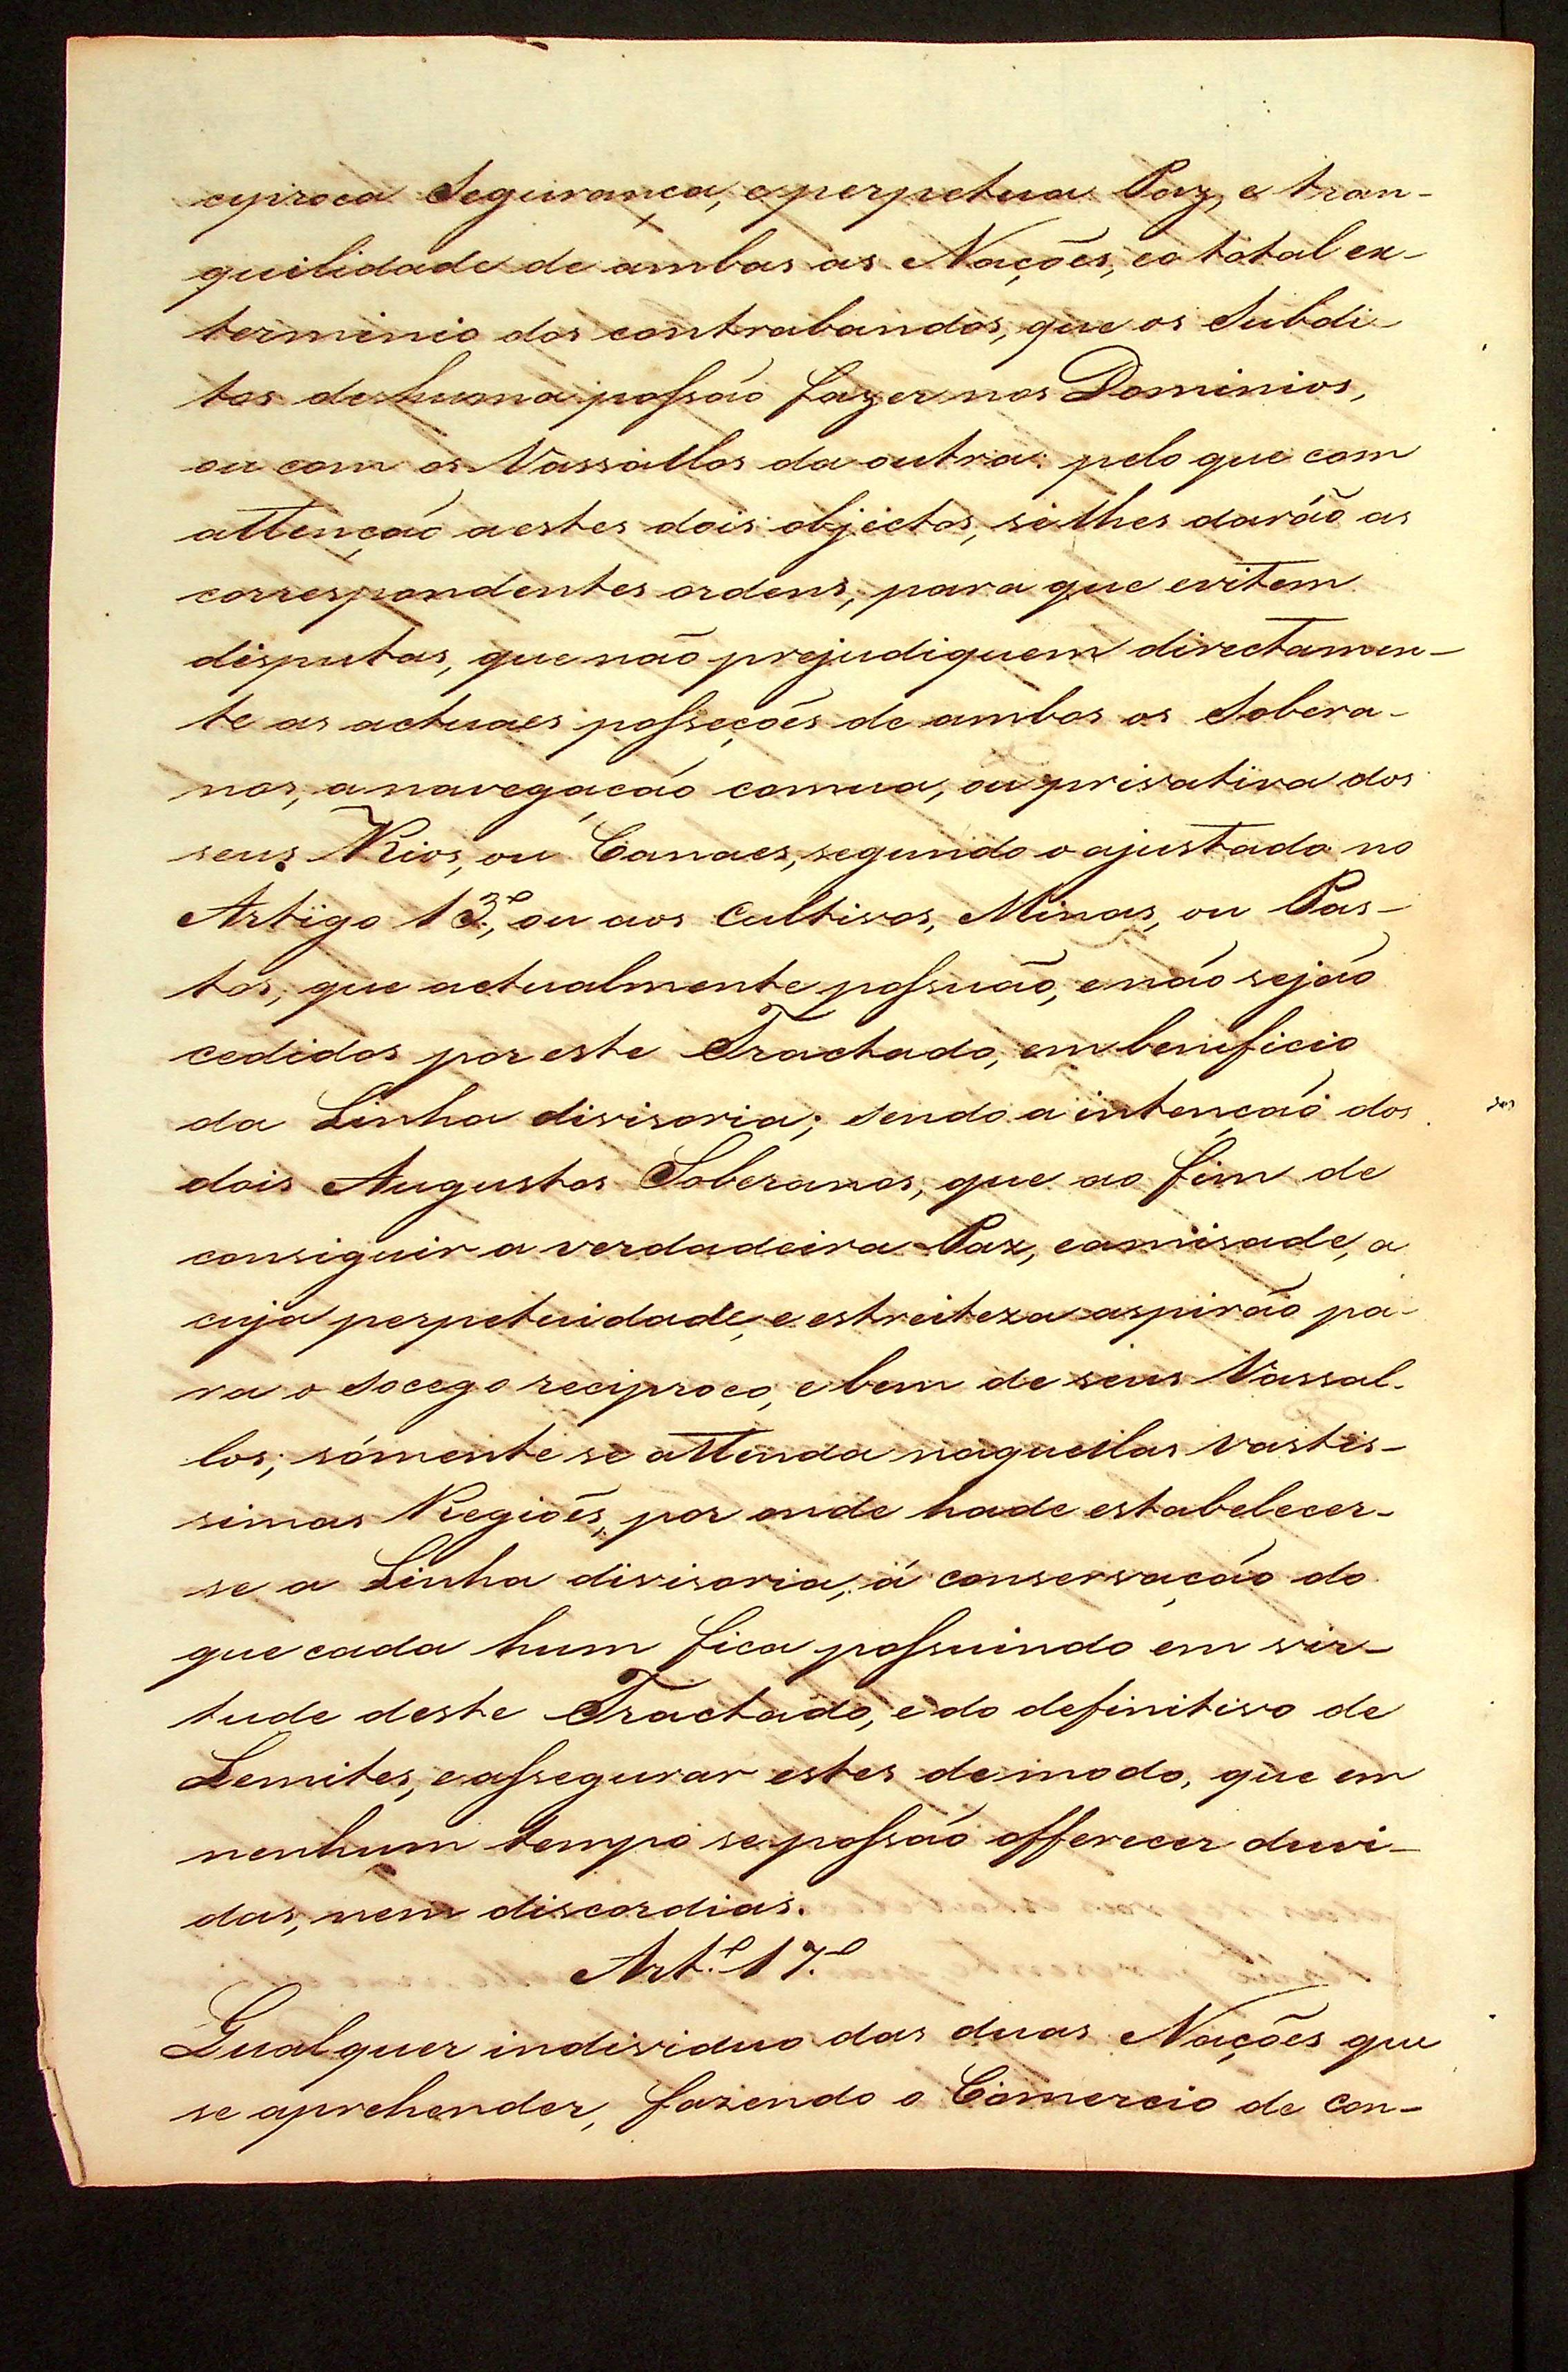 ciproca Segurança, e perpetua Paz, e tran-
quilidade de ambas as Nações, eo total ex-
terminio dos contrabandos, que os Subdi-
tos de huma poſsáo fazer nos Dominios,
ou com os Vassallos da outra: pelo que com
attençáo a estes dois objectos, se lhes daráõ as
correspondentes ordens, para que evitem
disputas, que não prejudiquem directamen-
te as actuaes poſseções de ambos os Sobera-
nos, a navegaçáo comua, ou privativa dos
seus Rios, ou Canaes, segundo o ajustado no
Artigo 13.º, ou aos Cultivos, Minas, ou Pas-
tos, que actualmente poſsuáõ, e náo sejáo
cedidos por este Tractado, em beneficio
da Linha divisoria; sendo a intençáó dos
dois Augustos Soberanos, que ao fim de
consiguir a verdadeira Paz, e amisade, a
cuja perpetuidade, e estreiteza aspiráo pa-
ra o Socego reciproco, e bem de seus Vassal-
los; sómente se attenda naquellas vastis-
simas Regiões, por onde hade estabelecer-
se a Linha divisoria, á conservaçáo do
que cada hum fica poſsuindo em vir-
tude deste Tractado, e do definitivo de
Lemites, e aſsegurar estes de modo, que em
nenhum tempo se poſsáo offerecer duvi-
das, nem discordias.
Art.º 17.º
Qualquer individuo das duas Nações que
se aprehender, fazendo o Comercio de con-